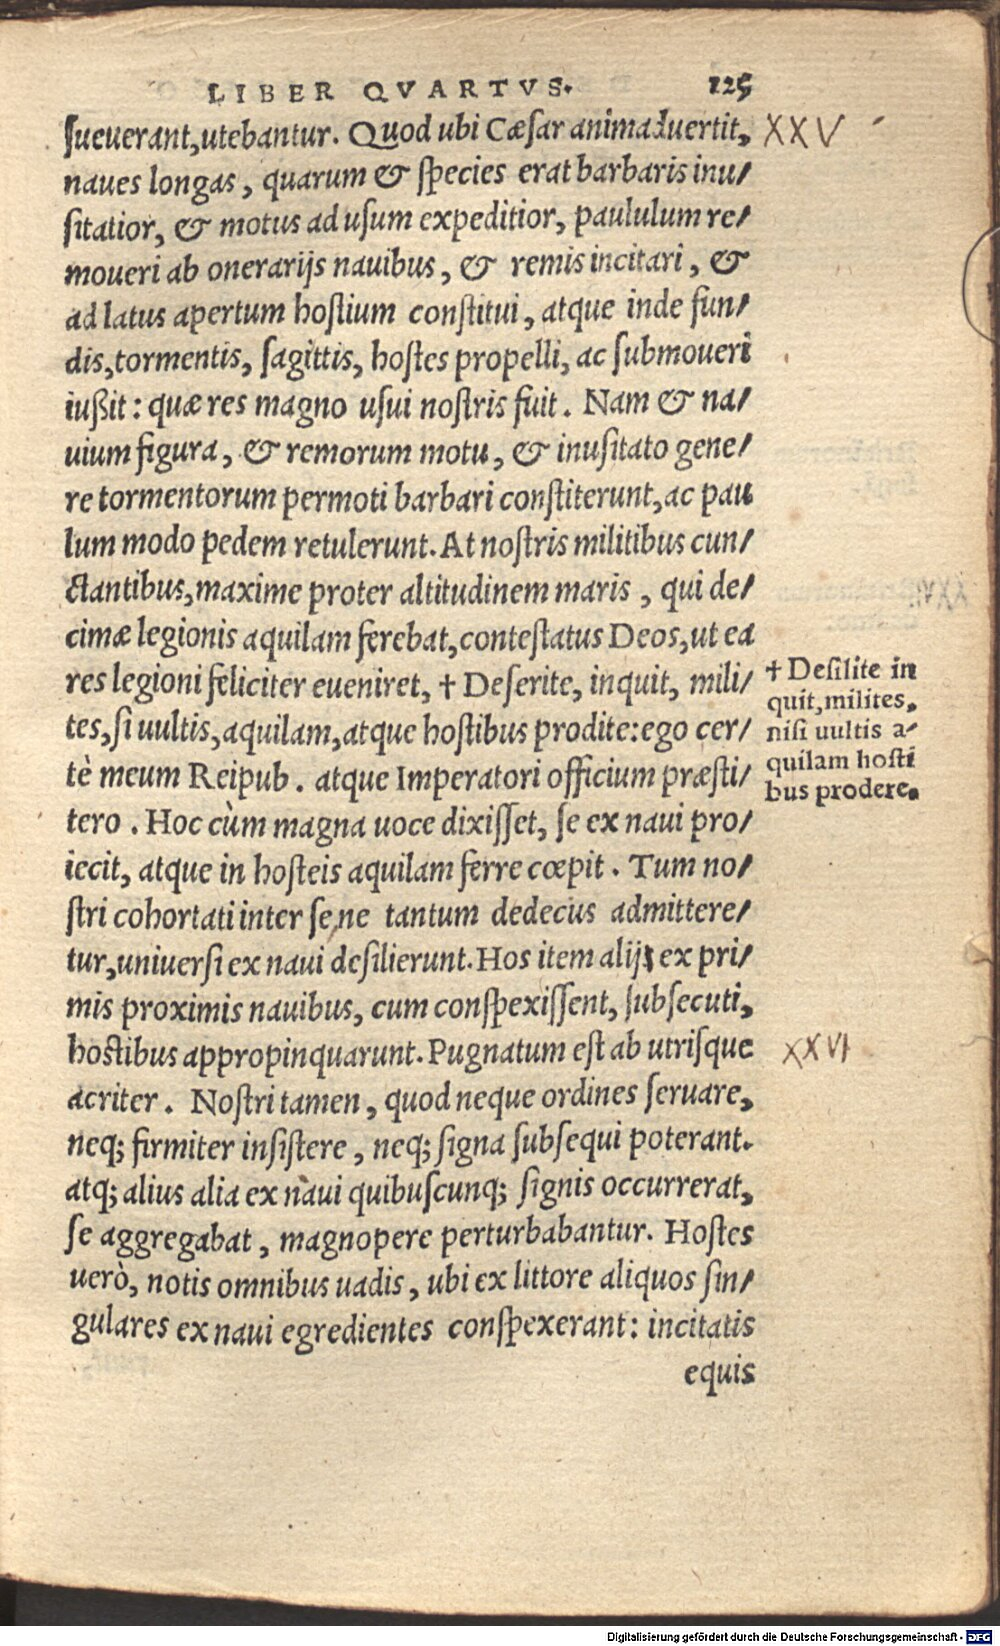 LIBER QVARTVS. 125
sueuerant,utebantur. Quod ubi Cæsar animaduertit, XXV
naues longas, quarum & species erat barbaris inu/
sitatior, & motus ad usum expeditior, paululum re/
moueri ab onerarijs nauibus, & remis incitari, &
ad latus apertum hostium constitui, atque inde fun/
dis,tormentis, sagittis, hostes propelli, ac submoueri
iußit: quæ res magno usui nostris fuit. Nam & na/
uium figura, & remorum motu, & inusitato gene/
re tormentorum permoti barbari constiterunt,ac pau
lum modo pedem retulerunt. At nostris militibus cun/
ctantibus,maxime proter altitudinem maris, qui de/
cimæ legionis aquilam ferebat,contestatus Deos,ut ea
res legioni feliciter eueniret, † Deserite, inquit, mili/
tes,si uultis,aquilam,atque hostibus prodite:ego cer/
tè meum Reipub. atque Imperatori officium præsti/
tero. Hoc cùm magna uoce dixisset, se ex naui pro/
iecit, atque in hosteis aquilam ferre cœpit. Tum no/
stri cohortati inter se,ne tantum dedecus admittere/
tur,uniuersi ex naui desilierunt. Hos item alijs ex pri/
mis proximis nauibus, cum conspexissent, subsecuti,
hostibus appropinquarunt. Pugnatum est ab utrisque
acriter. Nostri tamen, quod neque ordines seruare,
neq; firmiter insistere, neq; signa subsequi poterant.
atq; alius alia ex naui quibuscunq; signis occurrerat,
se aggregabat, magnopere perturbabantur. Hostes
uerò, notis omnibus uadis, ubi ex littore aliquos sin/
gulares ex naui egredientes conspexerant: incitatis
equis
† Desilite in
quit,milites,
nisi uultis a-
quilam hosti
bus prodere.
XXVI
Digitalisierung gefördert durch die Deutsche Forschungsgemeinschaft - DFG